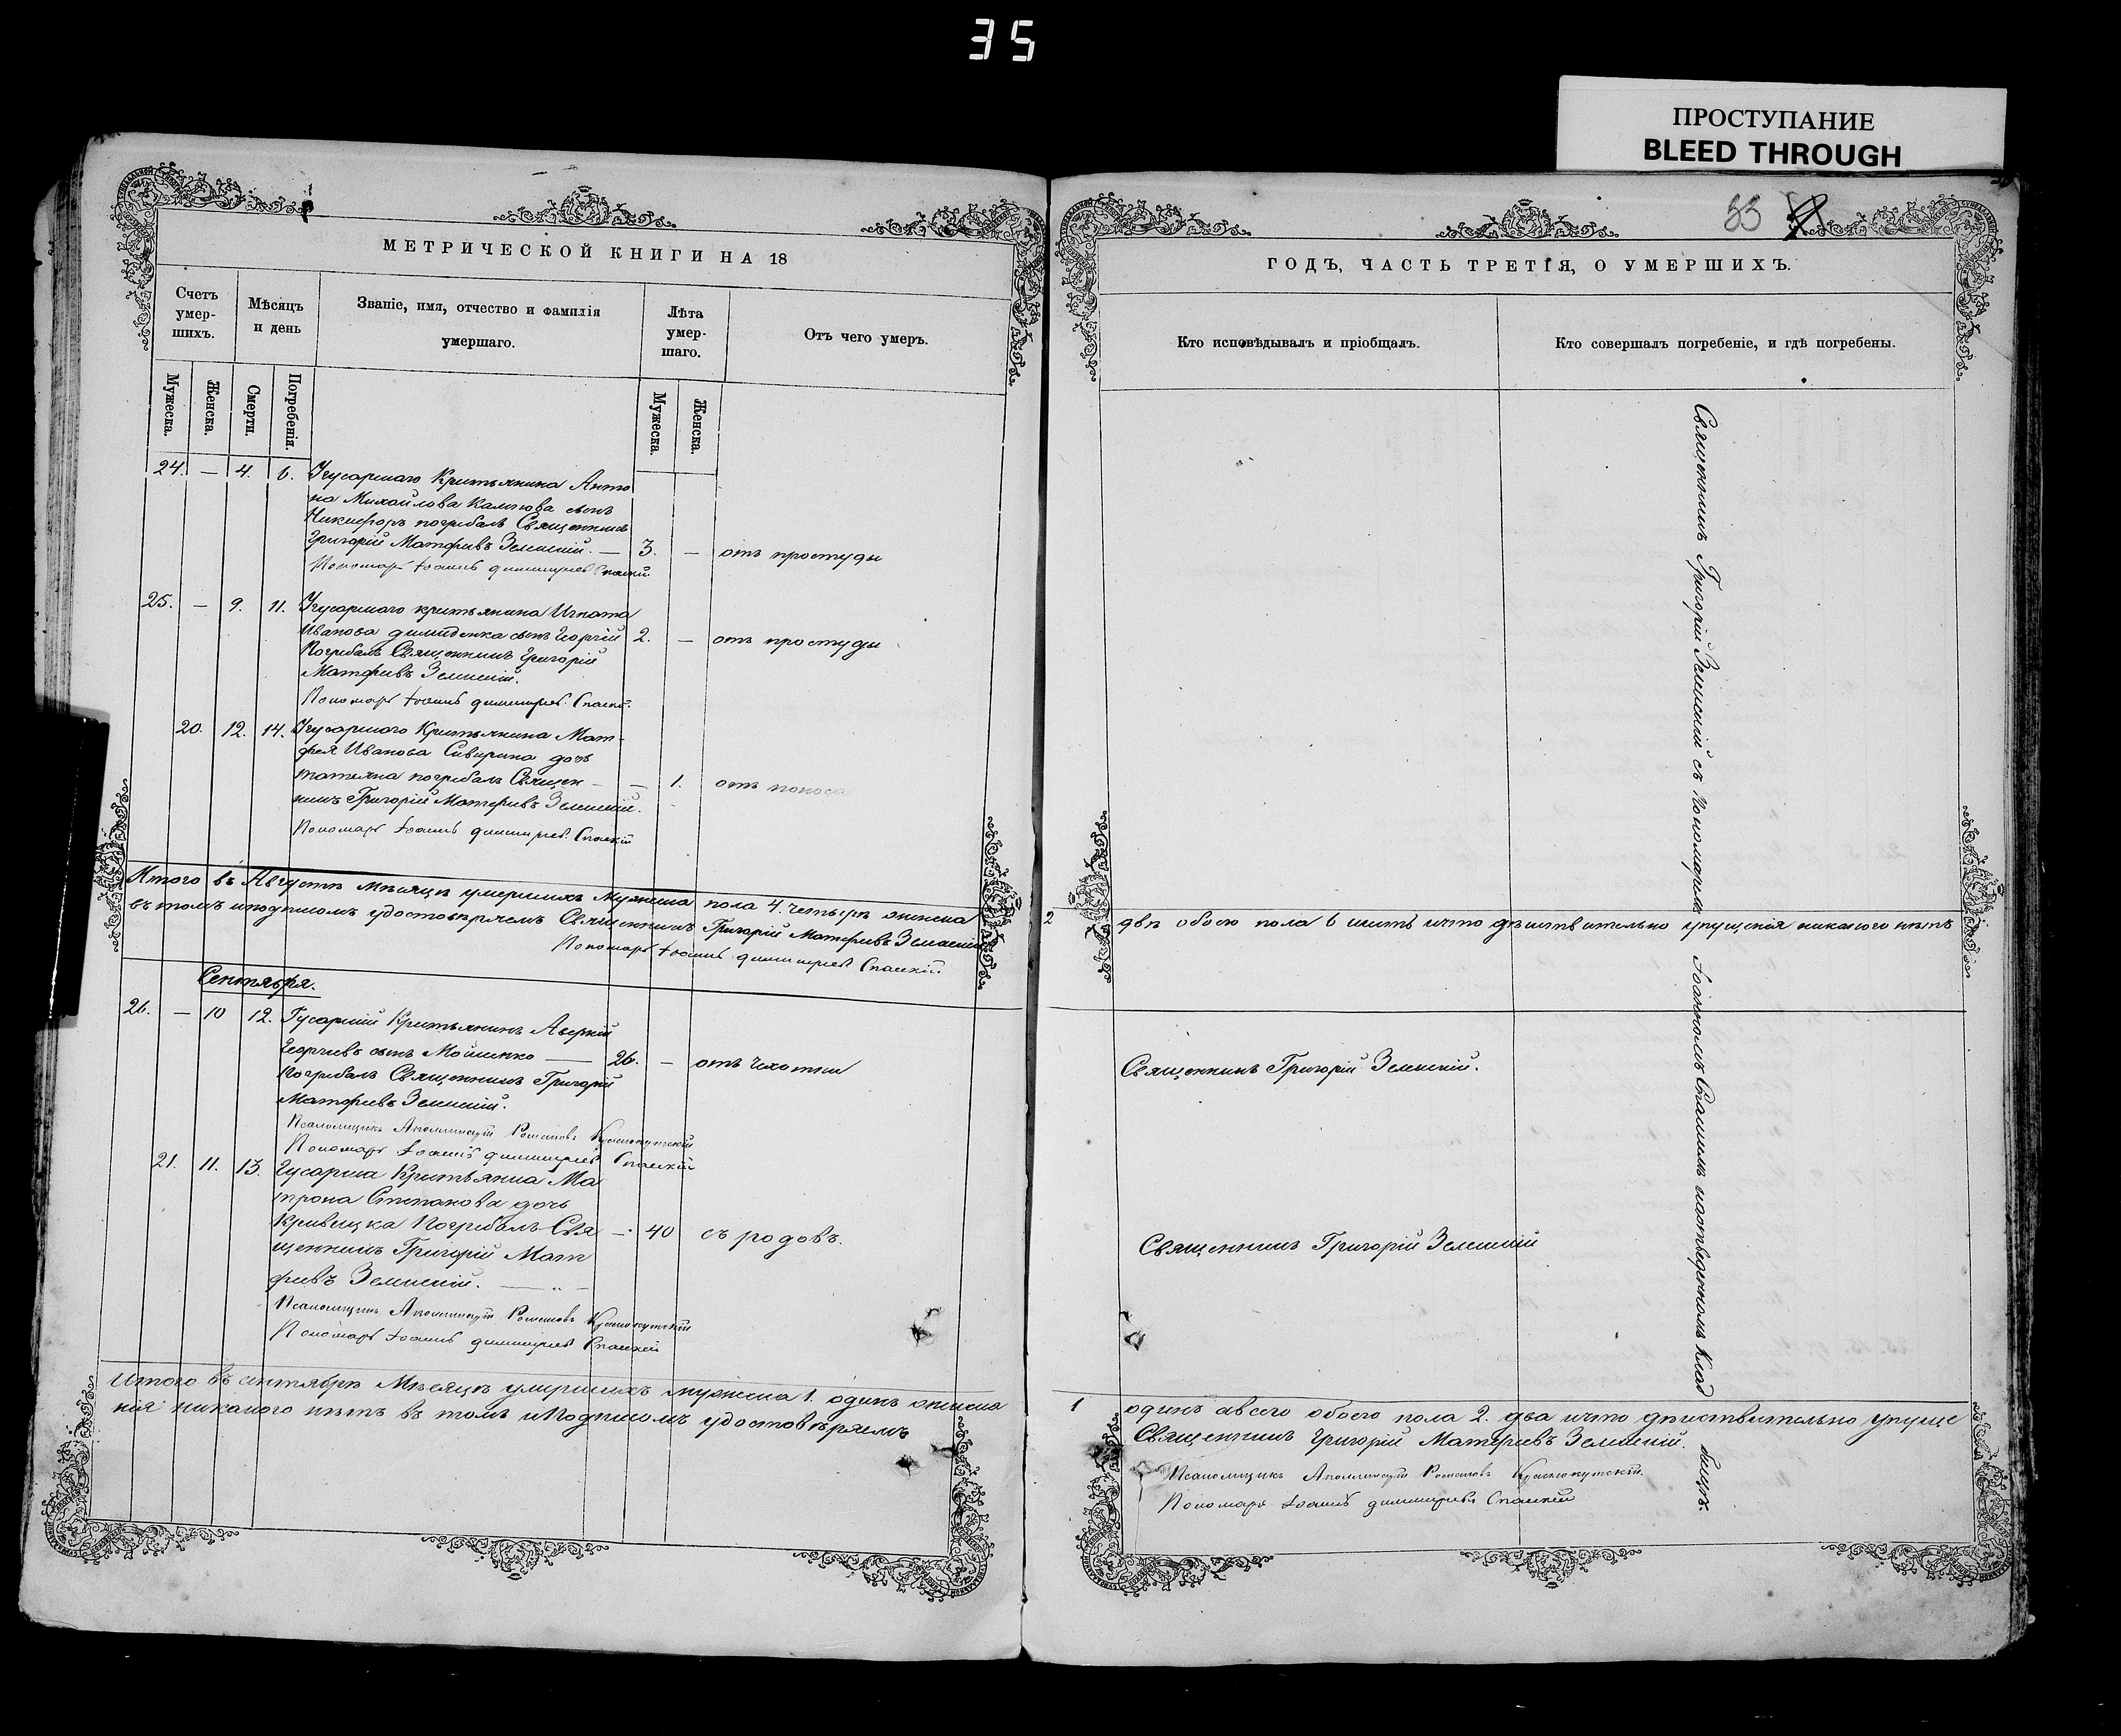 35
ПРОСТУПАНИЕ
BLEED THROUGH
МЕТРИЧЕСКОЙ КНИГИ НА 18
Счетъ умер-шихъ.
Мѣсяцъ и день
Званіе, имя, отчество и фамилія умершаго.
Лѣта умер-шаго.
Отъ чего умеръ.
Мужеска.
Женска.
Смерти.
Погребенія.
Мужеска.
Женска.
24. — 4. 6. Гусарскаго Крестьянина Анто
на Михайлова сынъ
Никифоръ погребалъ Священникъ
Григорій Матфѣевъ Зелинскій. — 3. — отъ простуды
Пономарь Іоаннъ Димитріевъ Спаскій
25. — 9. 11. Гусарскаго крестьянина Игната
Иванова сынъ Георгій 2. — отъ простуды
Погребалъ Священникъ Григорій
Матфѣевъ Зелинскій.
Пономарь Іоаннъ Димитріевъ Спаскій.
20. 12. 14. Гусарского Крестьянина Мат-
фея Иванова Сивирина дочь
татьяна погребалъ Священ — — 1. отъ поноса
никъ Григорій Матфѣевъ Зелинскій.
Пономарь Іоаннъ Димитріевъ Спаскій
Итого въ Августѣ Мѣсяцѣ умершихъ Мужеска пола 4. четыре женска
въ томъ и подписомъ удостовѣряемъ Священникъ Григорій Матфѣевъ Зелинскій
Пономарь Іоаннъ Димитріевъ Спаскій
Сентября.
26. — 10 12. Гусарскій Крестьянинъ Аверкій
Георгіевъ сынъ Мойсенко — 26. — отъ чахотки
Погребалъ Священникъ Григорій
Матфѣевъ Зелинскій.
Псаломщикъ Аполлинарій Романовъ Краснокутскій
Пономарь Іоаннъ Димитріевъ Спаскій
21. 11. 13. Гусарска Крестьянка Ма
трона Степанова дочь
Кривецка Погребалъ Свя — 40 съ родовъ.
щенникъ Григорій Мат
фѣевъ Зелинскій.
Псаломщикъ Аполлинарій Романовъ Краснокутскій
Пономарь Іоаннъ Димитріевъ Спаскій
Итого въ сентябрѣ Мѣсяцѣ умершихъ мужеска 1. одинъ женска
нія никакого нѣтъ въ томъ и Подписомъ удостовѣряемъ
33
ГОДЪ, ЧАСТЬ ТРЕТІЯ, О УМЕРШИХЪ.
Кто исповѣдывалъ и пріобщалъ.
Кто совершалъ погребеніе, и гдѣ погребены.
Священникъ Григорій Зелинскій съ Пономаремъ Іоанномъ Спаскимъ на отведенномъ Клад
бищѣ.
2 двѣ обоего пола 6 шесть и что дѣйствительно упущенія никакого нѣтъ
Священникъ Григорій Зелинскій.
Священникъ Григорій Зелинскій
1 одинъ а всего обоего пола 2. два и что дѣйствительно упуще
Священникъ Григорій Матфѣевъ Зелинскій.
Псаломщикъ Аполлинарій Романовъ Краснокутскій.
Пономарь Іоаннъ Димитріевъ Спаскій